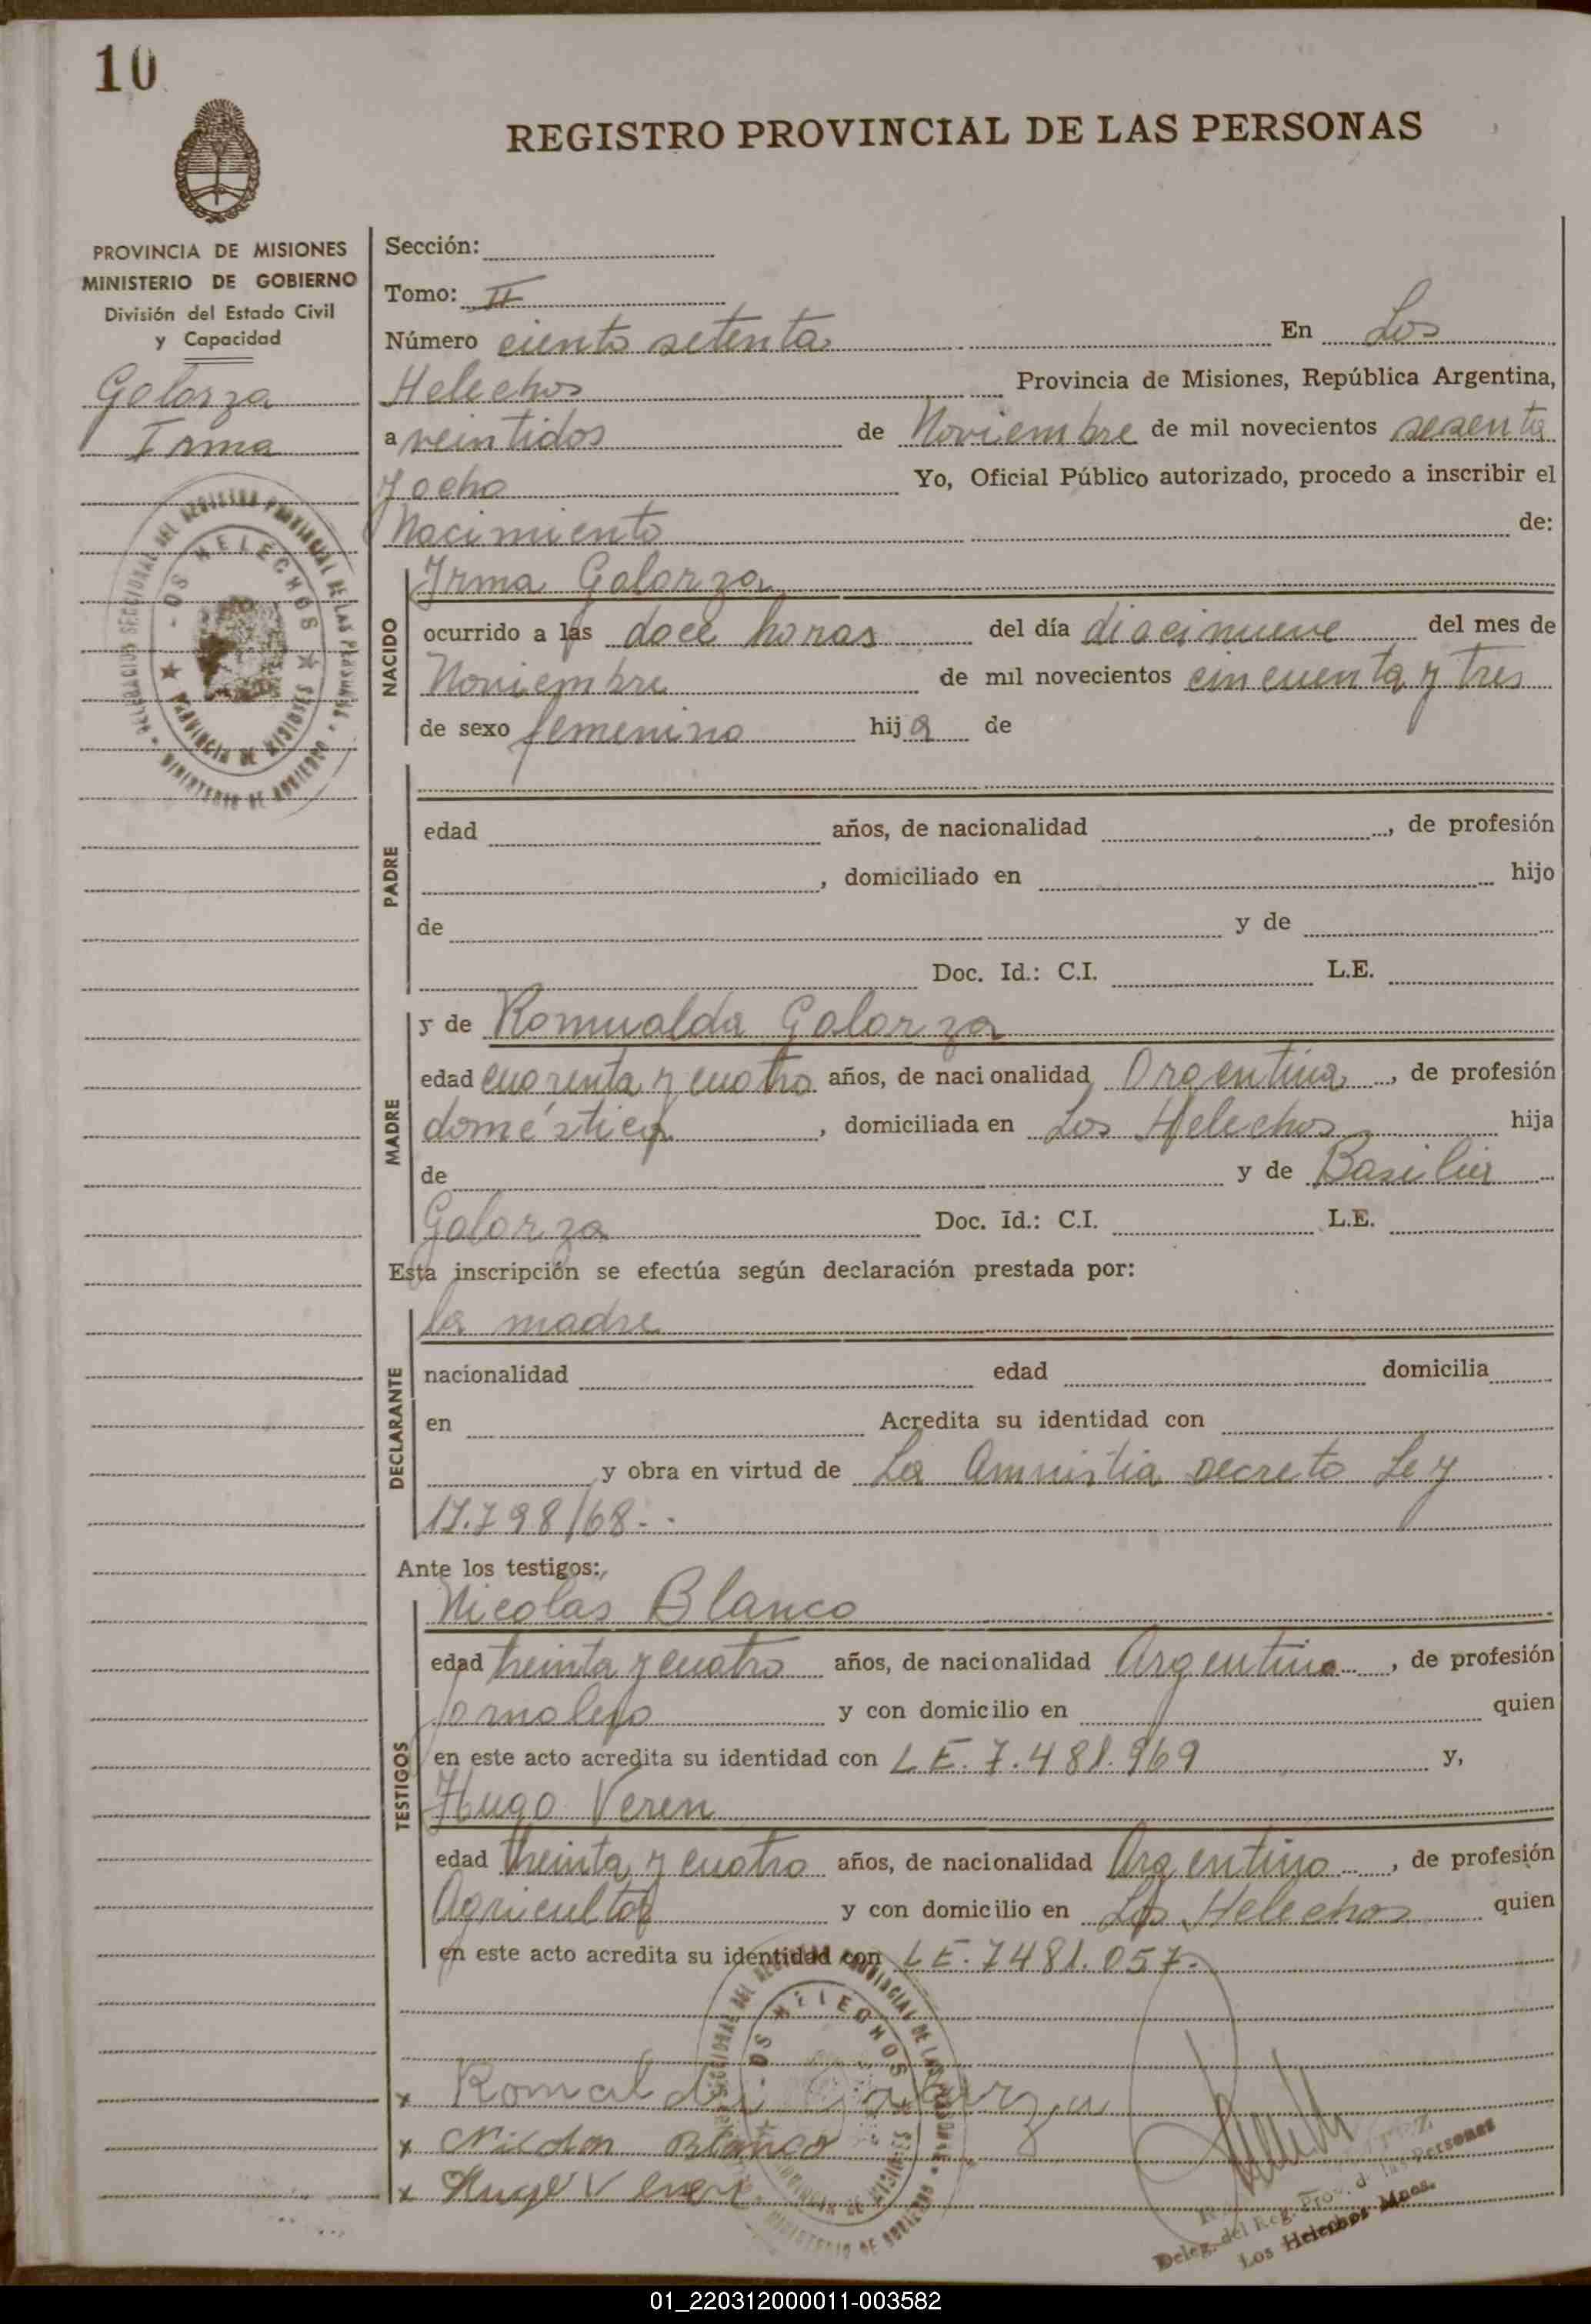 10
REGISTRO PROVINCIAL DE LAS PERSONAS
PROVINCIA DE MISIONES
MINISTERIO DE GOBIERNO
División del Estado Civil
y Capacidad
Galarza
Irma
DELEGACION SECCIONAL DEL REGISTRO PROVINCIAL DE LAS PERSONAS
LOS HELECHOS
PROVINCIA DE MISIONES
MINISTERIO DE GOBIERNO
Sección:
Tomo: II
Número ciento setenta En Los
Helechos Provincia de Misiones, República Argentina,
a veintidos de Noviembre de mil novecientos sesenta
y ocho Yo, Oficial Público autorizado, procedo a inscribir el
Nacimiento de:
NACIDO
Irma Galarza
ocurrido a las doce horas del día diecinueve del mes de
Noviembre de mil novecientos cincuenta y tres
de sexo femenino hija de
PADRE
edad años, de nacionalidad , de profesión
, domiciliado en hijo
de y de
Doc. Id.: C.I. L.E.
MADRE
y de Romualda Galarza
edad cuarenta y cuatro años, de nacionalidad Argentina , de profesión
doméstica , domiciliada en Los Helechos hija
de y de Basilia
Galarza Doc. Id.: C.I. L.E.
Esta inscripción se efectúa según declaración prestada por:
DECLARANTE
la madre
nacionalidad edad domicilia
en Acredita su identidad con
y obra en virtud de La Amnistia Decreto Ley
17.798/68.-
Ante los testigos:
TESTIGOS
Nicolas Blanco
edad treinta y cuatro años, de nacionalidad Argentino , de profesión
Jornalero y con domicilio en quien
en este acto acredita su identidad con L E. 7.481.969 y,
Hugo Veren
edad treinta y cuatro años, de nacionalidad Argentino , de profesión
Agricultor y con domicilio en Los Helechos quien
en este acto acredita su identidad con L E. 7481.057.
x Romalda Galarza
x Nicolas Blanco
x Hugo Veren
Deleg. del Reg. Prov. de las Personas
Los Helechos Mnes.
01_220312000011-003582